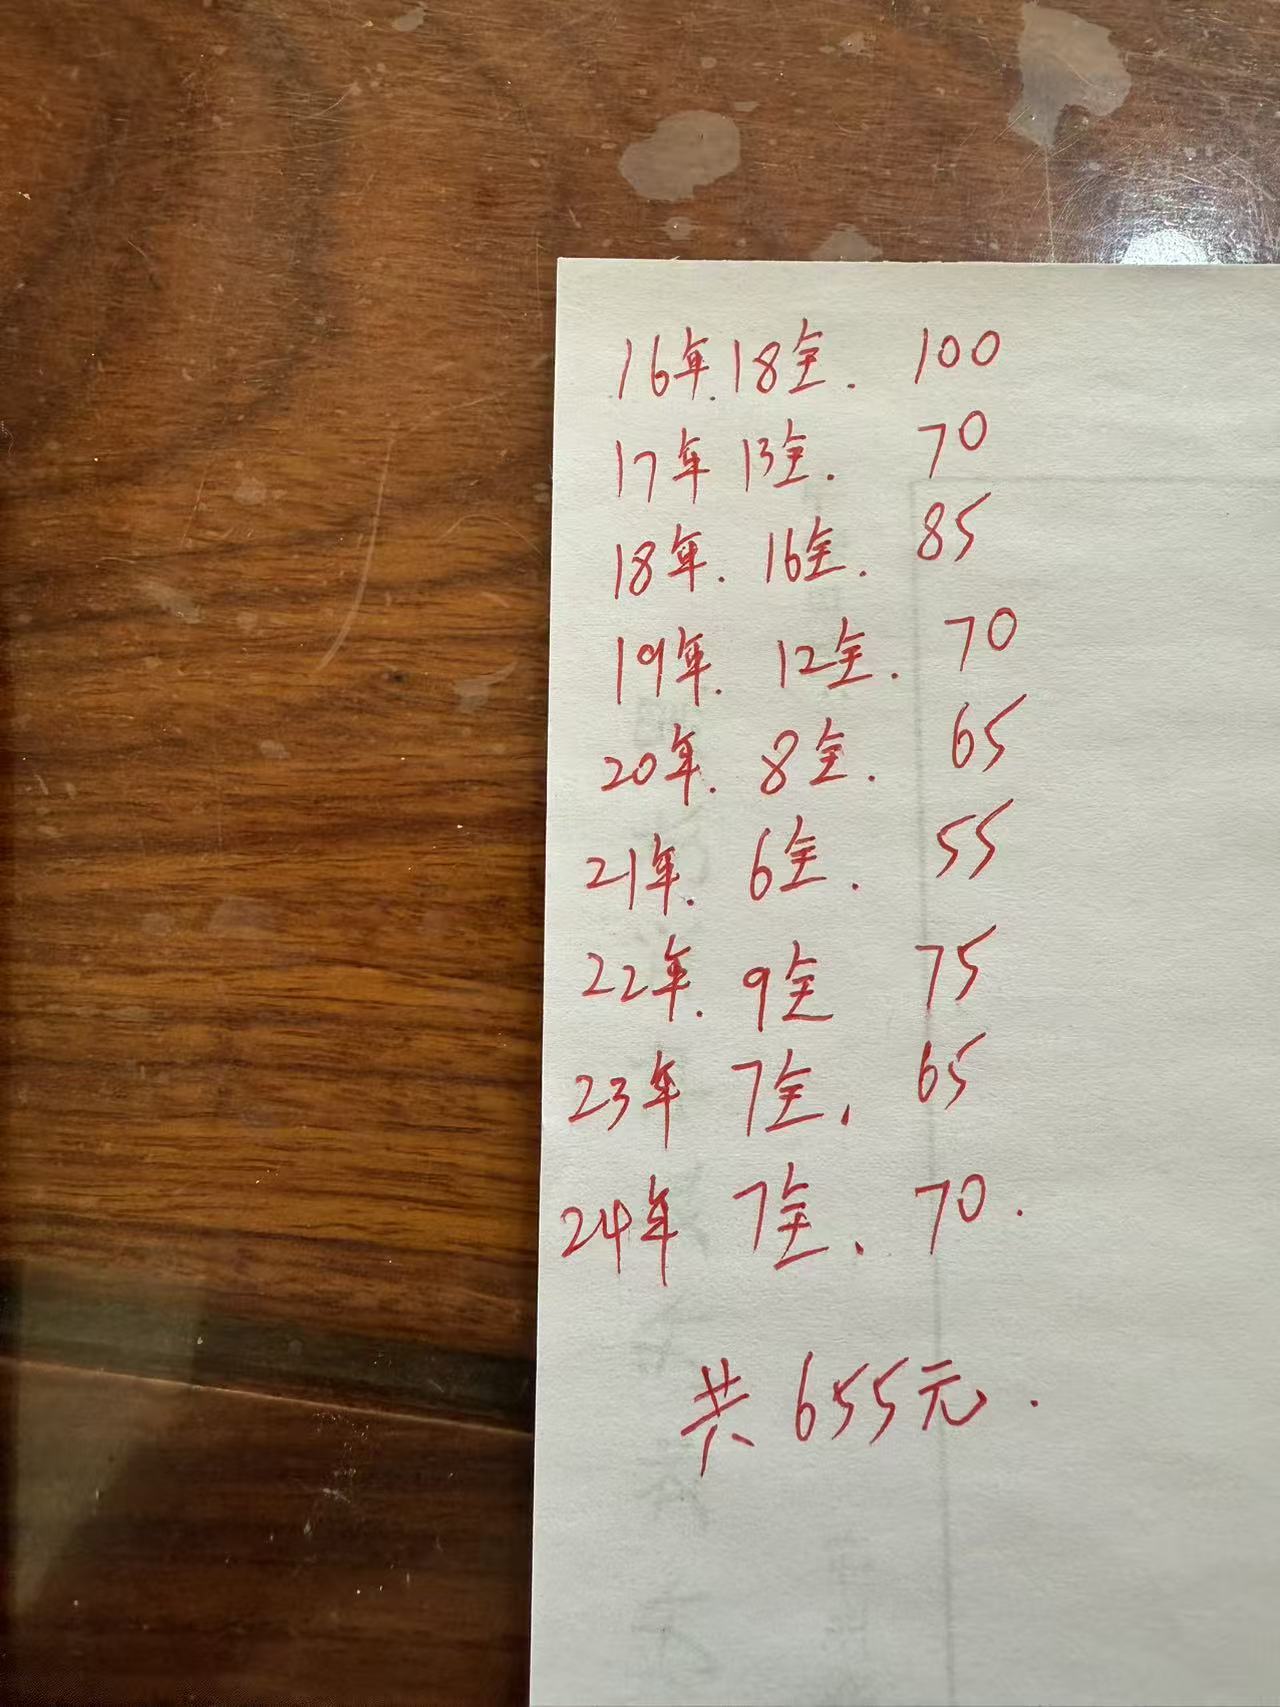 16年.18全. 100
17年 13全. 70
18年. 16全. 85
19年. 12全. 70
20年. 8全. 65
21年. 6全. 55
22年. 9全 75
23年 7全. 65
24年 7全. 70.
共 655元.